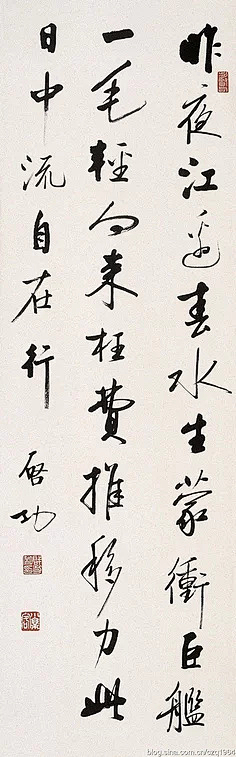 昨夜江边春水生蒙衝巨艦
一毛輕向来枉費推移力此
日中流自在行
启功
blog.sina.com.cn/czq1964